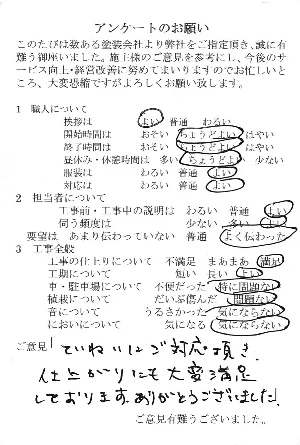 アンケートのお願い
このたびは数ある塗装会社より弊社をご指定頂き、誠に有
難う御座いました。施主様のご意見を参考にし、今後のサ
ービス向上・経営改善に努めてまいりますのでお忙しいと
ころ、大変恐縮ですがよろしくお願い致します。
1 職人について
挨拶は よい 普通 わるい
開始時間は おそい ちょうどよい はやい
終了時間は おそい ちょうどよい はやい
昼休み・休憩時間は 多い ちょうどよい 少ない
服装は わるい 普通 よい
対応は わるい 普通 よい
2 担当者について
工事前・工事中の説明は わるい 普通 よい
伺う頻度は 少ない 多い よい
要望は あまり伝わっていない 普通 よく伝わった
3 工事全般
工事の仕上りについて 不満足 まあまあ 満足
工期について 短い 長い よい
車・駐車場について 不便だった 特に問題ない
植栽について だいぶ傷んだ 問題ない
音について うるさかった 気にならない
においについて 気になる 気にならない
ご意見 ていねいにご対応頂き、
仕上がりにも大変満足
しております。ありがとうございました。
ご意見有難うございました。